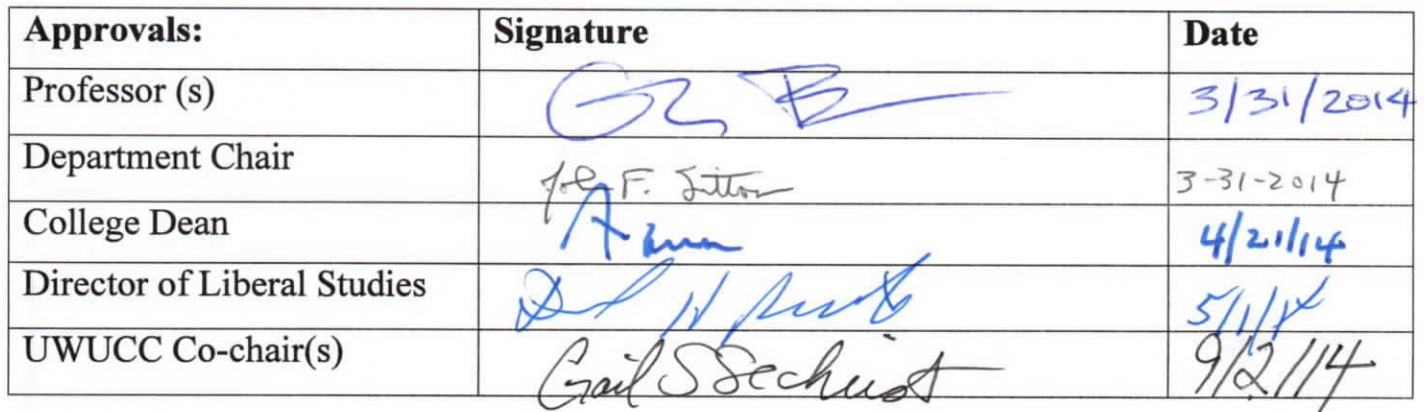 Approvals: Signature Date
Professor (s) 3/31/2014
Department Chair John F. Sitton 3-31-2014
College Dean 4/21/14
Director of Liberal Studies 5/1/14
UWUCC Co-chair(s) Gail S Sechrist 9/2/14